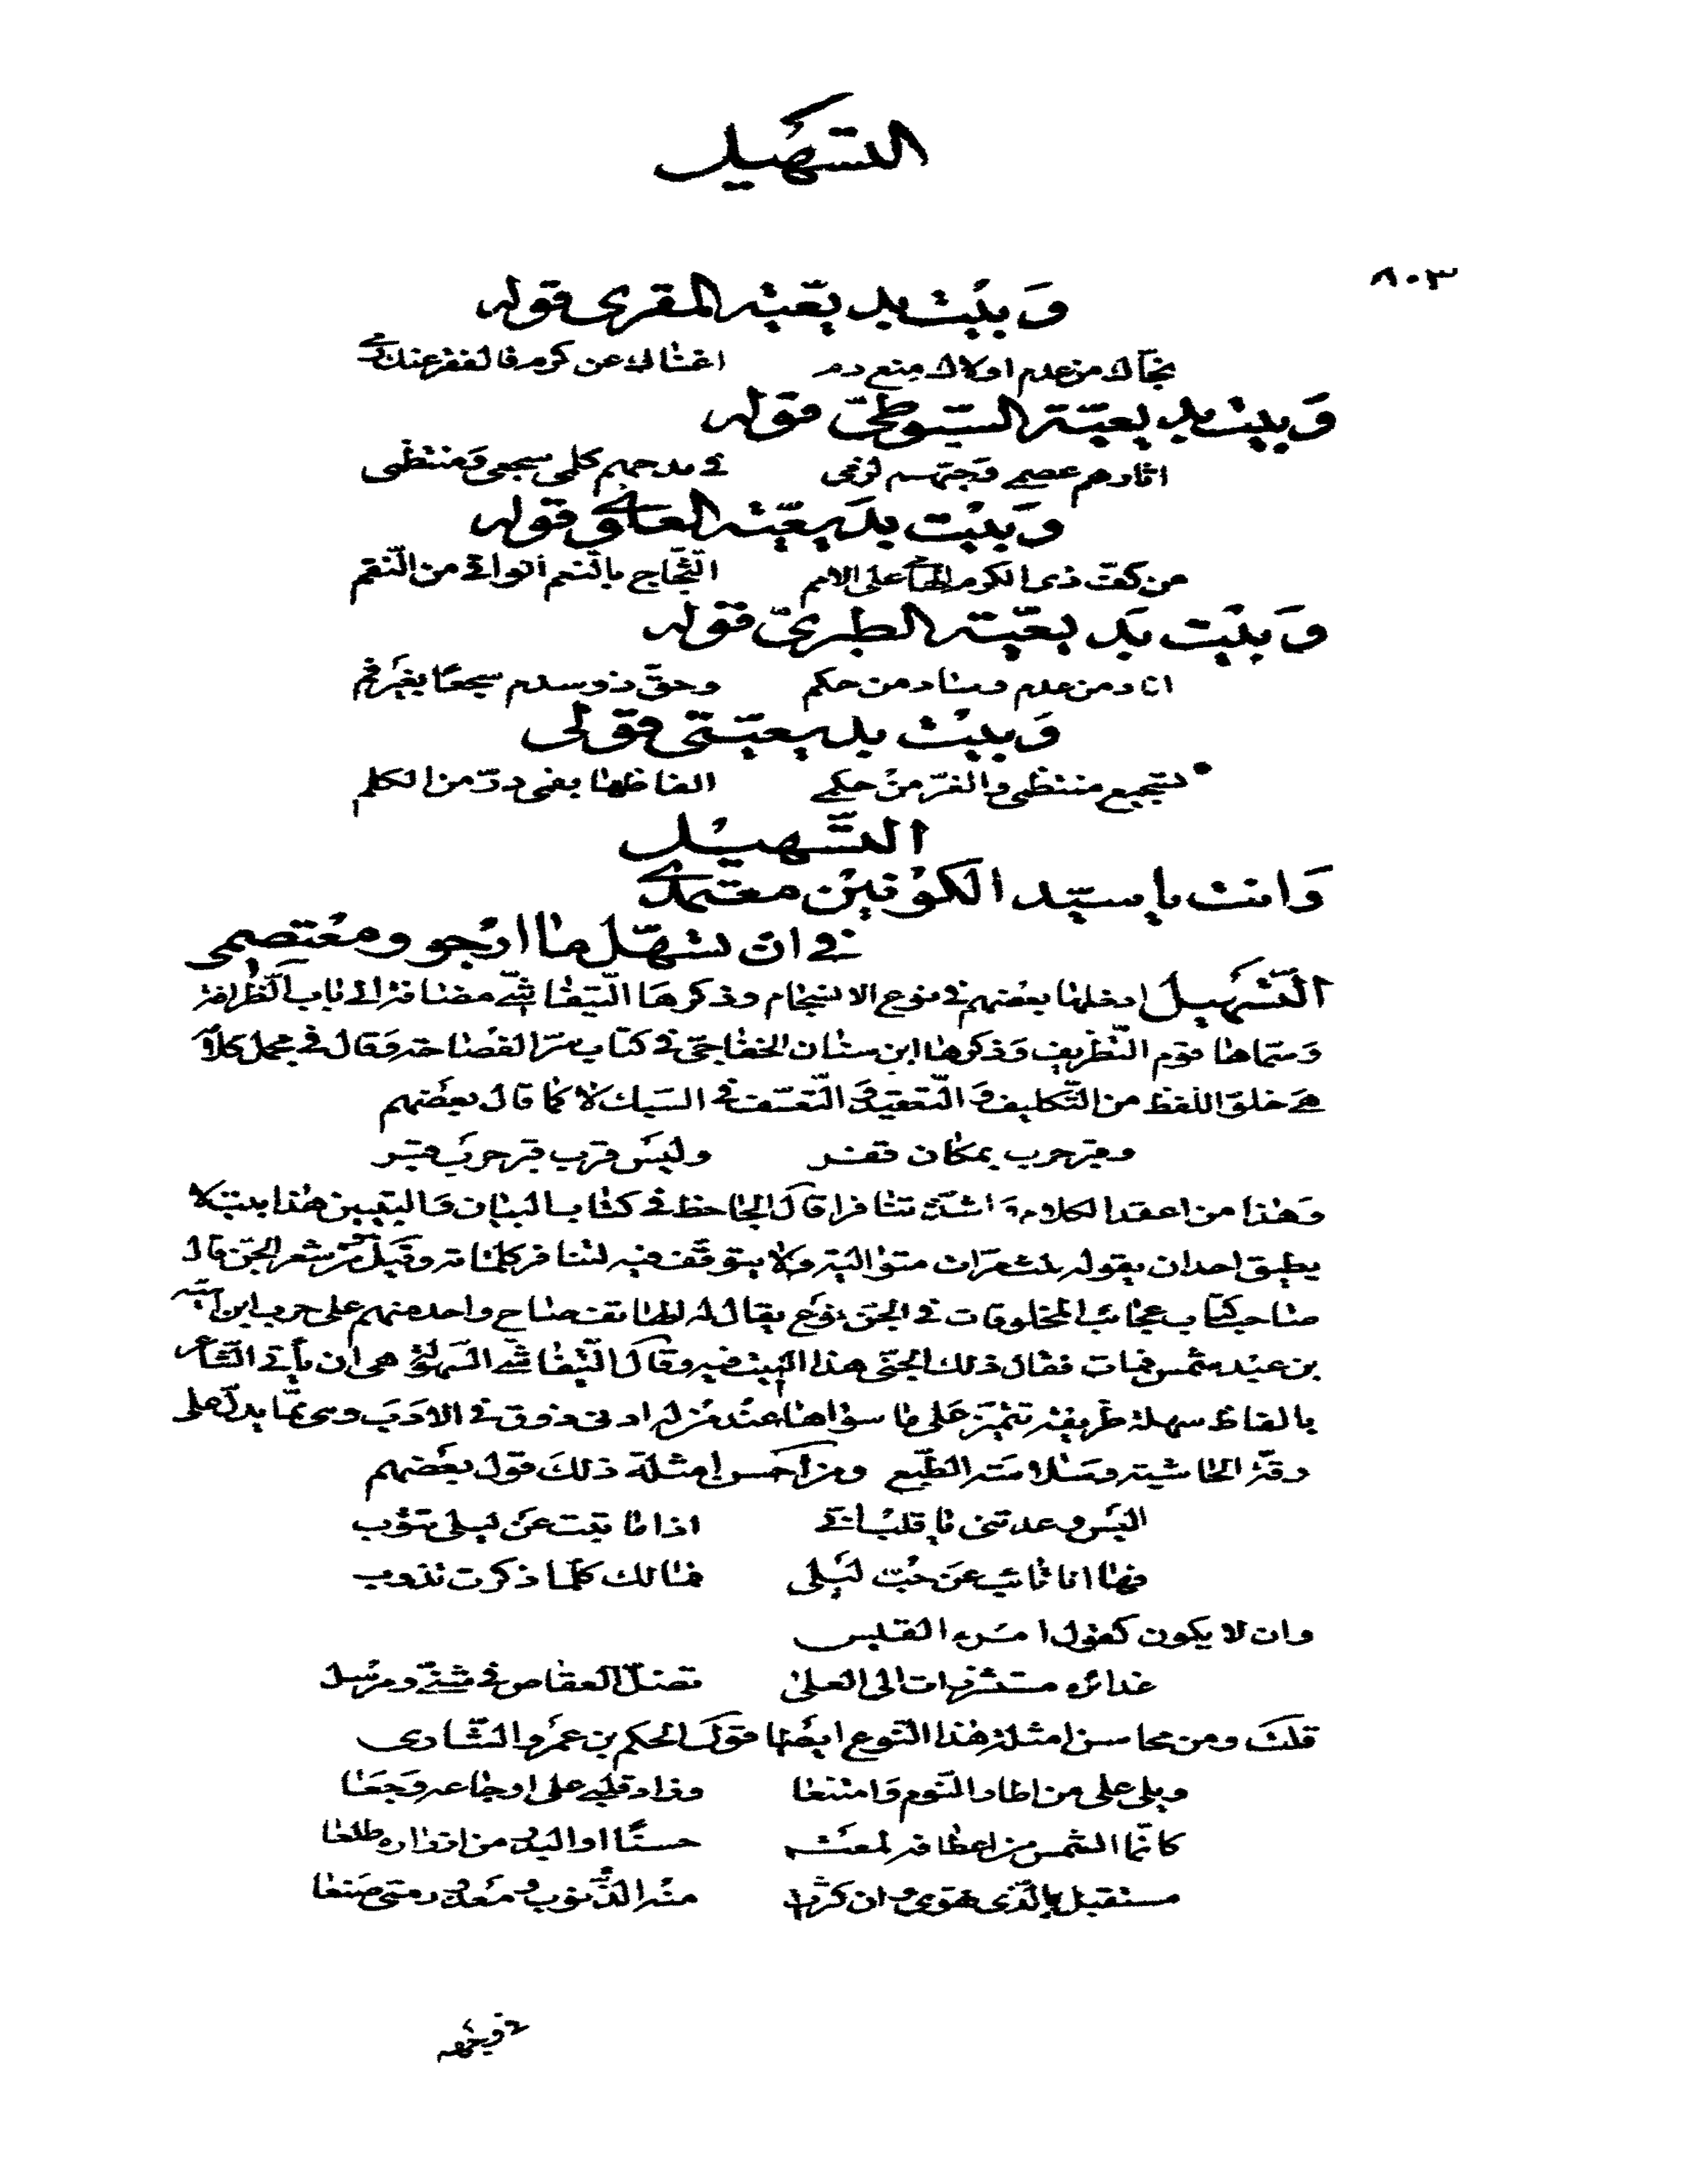 التسهيل
٨٠٣
وبيت بديعية المقرى قوله
نجاك من عدم اولاك منع دم اغنالى عن كرم فالففر عنك
وبيت بديعية السيوطى قوله
اثارهم عصمى وجبهم لزمى فى مدحهم كلمى سجعى ومنتظمى
وبيت بديعية العلوى قوله
من كعت ذى الكرم على الامم الثجاج بالنعم من النقم
وبيت بديعية الطبرى قوله
اناد من عدم وساد من حكم وحق ذو سدم سجعا بغير فم
وبيت بديعيتى قولى
تسجيع منتظمى والغر من حكمى الفاظها بفمى در من الكلم
التسهيل
وانت يا سيد الكونين معتمدى
فى ان تسهل ما ارجو ومعتصمى
التسهيل ادخلها بعضهم فى نوع الانسجام وذكرها التيفاشى مضافة الى باب الظرافة
وسماها قوم التظريف وذكرها ابن سنان الخفاجى فى كتاب سر الفصاحة وقال فى مجمل كلامه
هى خلق اللفظ من التكليف والتعقيد والتعسف فى السبك لا كما قال بعضهم
وقبر حرب بمكان قفر وليس قرب قبر حرب قبر
وهذا من اعقد الكلام واشده تنافرا قال الجاحظ فى كتاب البيان والتبيين هذا بيت لا
يطيق احد ان يقوله ثلث مرات متوالية ولا يتوقف فيه لتنافر كلماته وقيل هو من شعر الجن قال
صاحب كتاب عجائب المخلوقات فى الجن نوع يقال له لها تف صاح واحد منهم على حرب ابن اميه
بن عبد شمس فمات فقال ذلك الجنى هذا البيت فيه وقال التيفاشى السهولة هى ان يأتى الشاعر
بالفاظ سهلة ظريفة تتميز على ما سواها عند من له ادنى ذوق فى الادب وهى مما يدل على
رقة الحاشية وسلامته الطبع ومن احسن امثلة ذلك قول بعضهم
اليس وعدتنى يا قلب انى اذا ما تبت عن ليلى تتوب
فها انا تائب عن حب ليلى فمالك كلما ذكرت تذوب
وان لا يكون كقول امرء القيس
غدائره مستشزرات الى العلى تضل العقاص فى مثنى ومرسل
قلت ومن محاسن امثلة هذا النوع ايضا قول الحكم بن عمرو الشارى
ويلى على من اطار النوم وامتنعا وزاد قلبى على اوجاعه وجعا
كانما الشمس من اعطافه لمعت حسنا او البدر من ازراره طلعا
مستقبل بالذى يهوى وان كثرت منه الذنوب ومعذور متى صنعا
فى وجهه